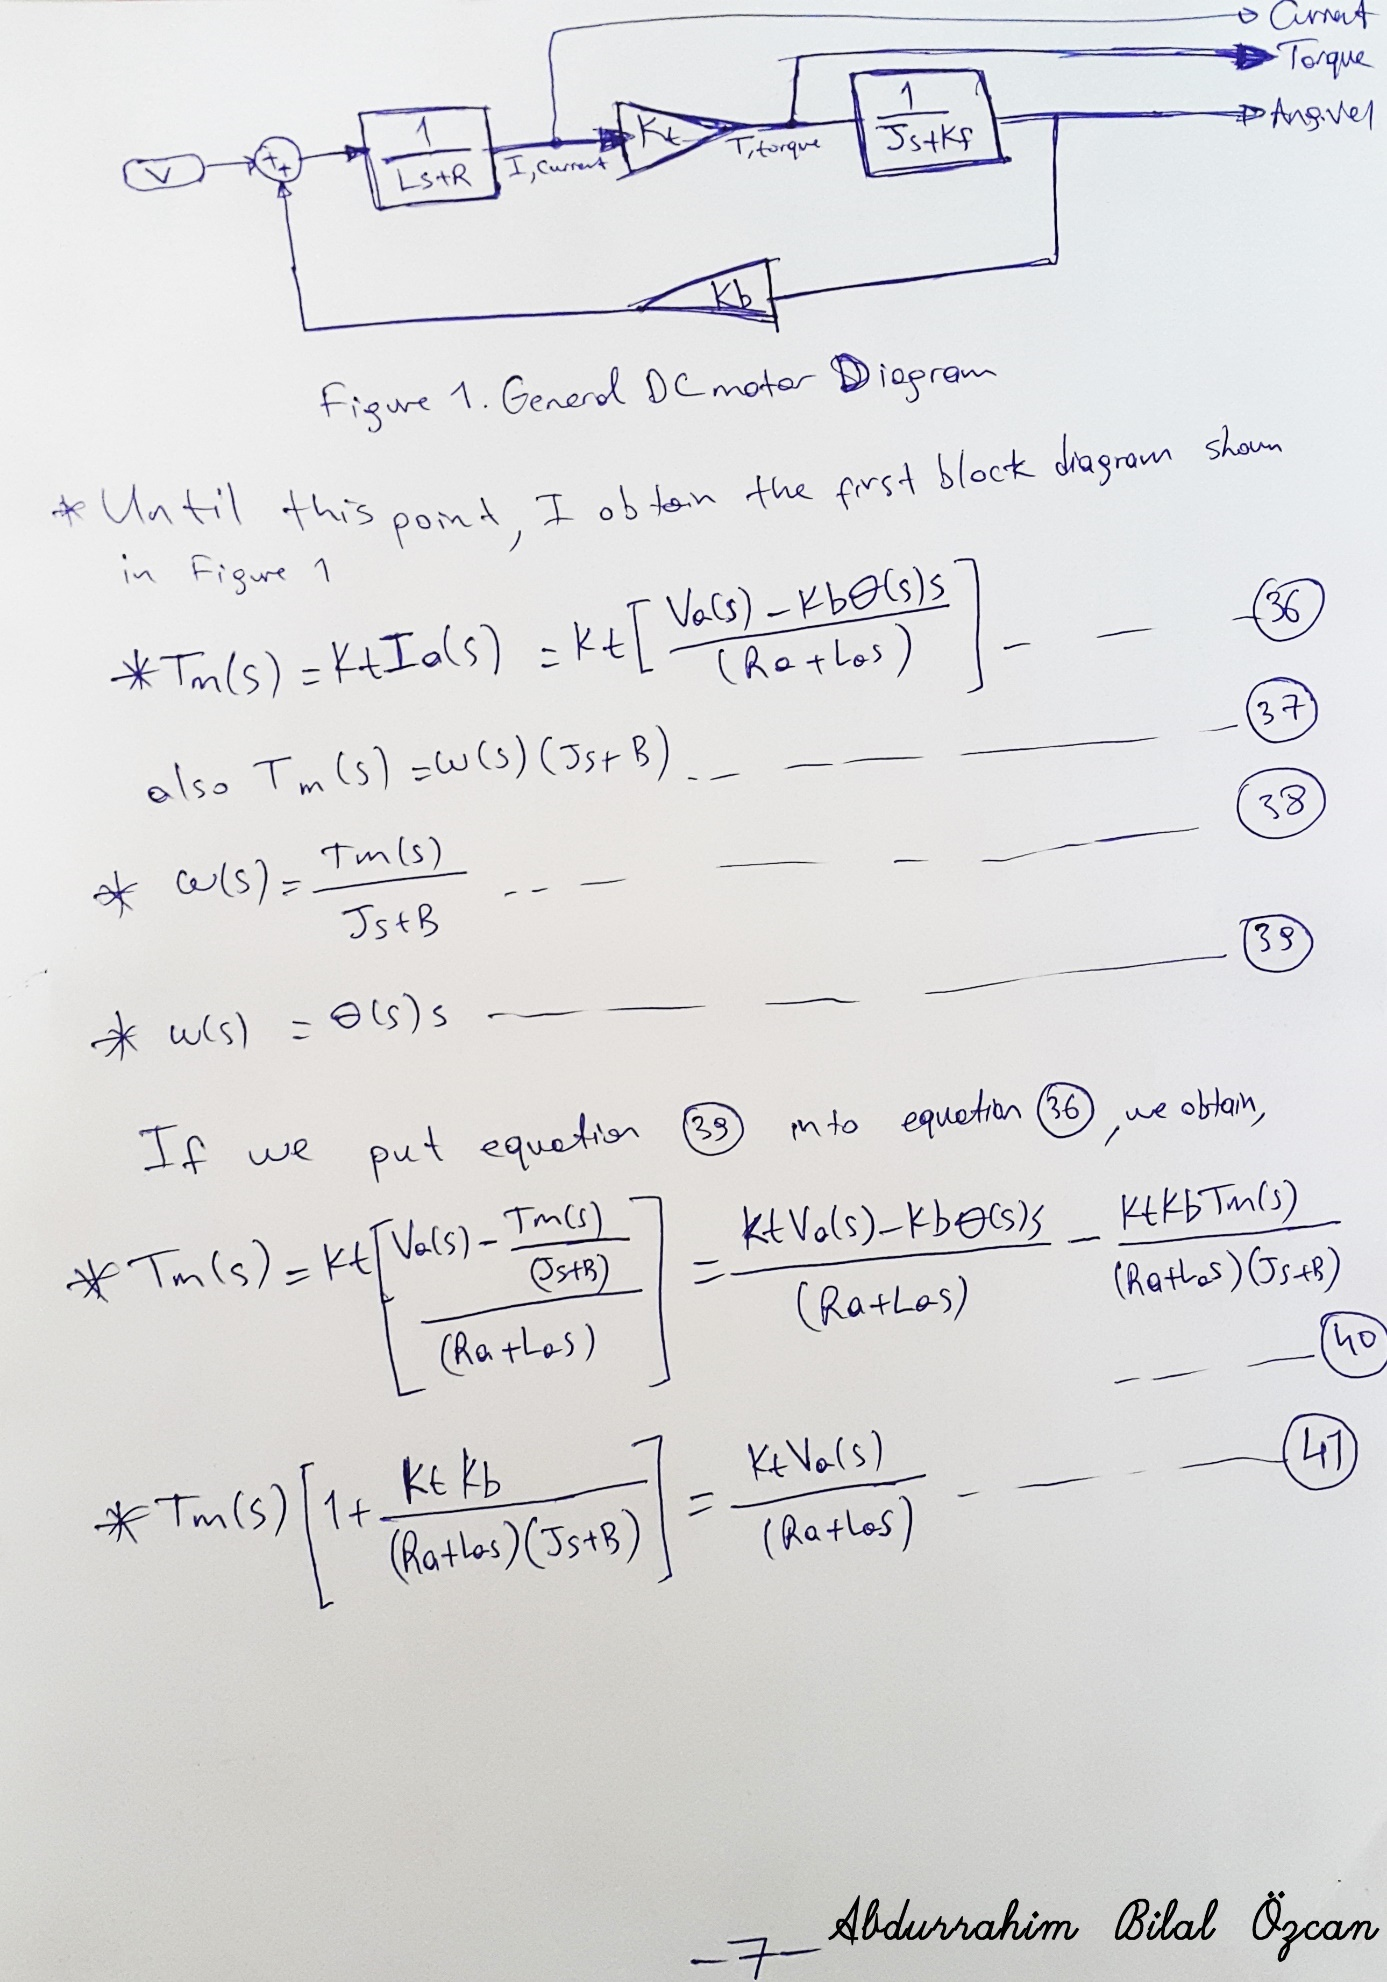 Current
Torque
Ang.vel
V
++
1
Ls+R
I, Current
Kt
T, torque
1
Js+Kf
Kb
Figure 1. General DC motor Diagram
* Until this point, I obtain the first block diagram shown
in Figure 1
* Tm(s) = KtIa(s) = Kt[ Va(s) - Kbθ(s)s / (Ra+Las) ] - — — 36
also Tm(s) = ω(s)(Js+B) -- — — — 37
* ω(s) = Tm(s) / Js+B -- — — - — 38
* ω(s) = θ(s)s — — — — 39
If we put equation 39 into equation 36, we obtain,
* Tm(s) = Kt[ Va(s) - Tm(s)/(Js+B) / (Ra+Las) ] = KtVa(s) - Kbθ(s)s / (Ra+Las) - KtKbTm(s) / (Ra+Las)(Js+B)
-- — — 40
* Tm(s)[ 1 + Kt Kb / (Ra+Las)(Js+B) ] = KtVa(s) / (Ra+Las) - — - — 41
-7-
Abdurrahim Bilal Özcan